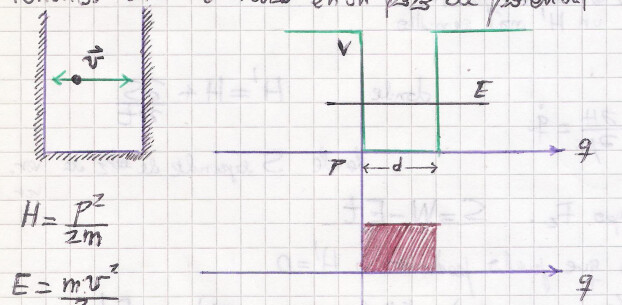 en un pozo de potencial
v⃗
V
E
q
P
d
H = P²/2m
q
E = mv²/2